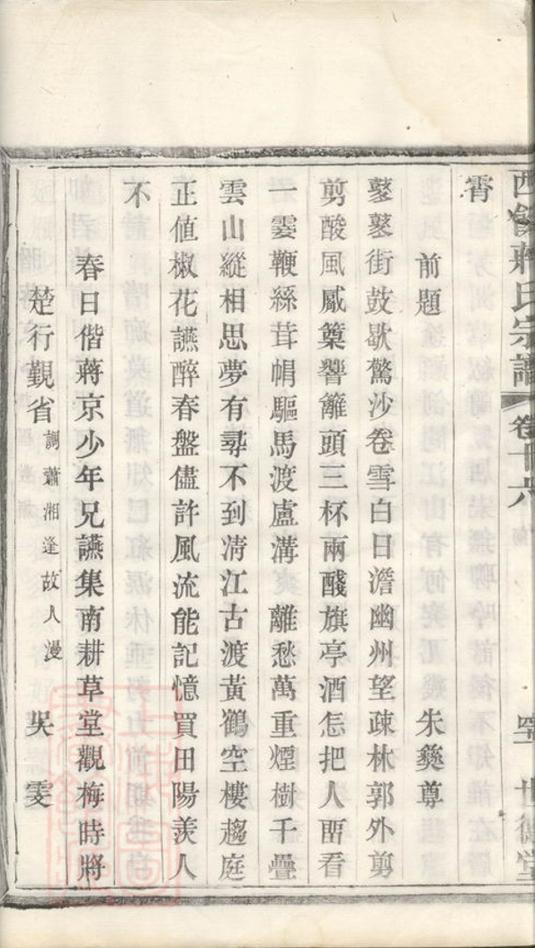 西餘蔣氏宗譜 卷十六 世德堂
霄
前題 朱彝尊
鼕鼕街鼓歇驚沙卷雪白日澹幽州望疎林郭外剪
剪酸風颳篥響籬頭三杯兩醆旗亭酒怎把人畱看
一霎鞭絲茸帽驅馬渡盧溝 離愁萬重煙樹千疊
雲山縱相思夢有尋不到淸江古渡黃鶴空樓趨庭
正値椒花讌醉春盤儘許風流能記憶買田陽羨人
不
春日偕蔣京少年兄讌集南耕草堂觀梅時將
楚行觐省 調瀟湘逢故人漫 吳雯